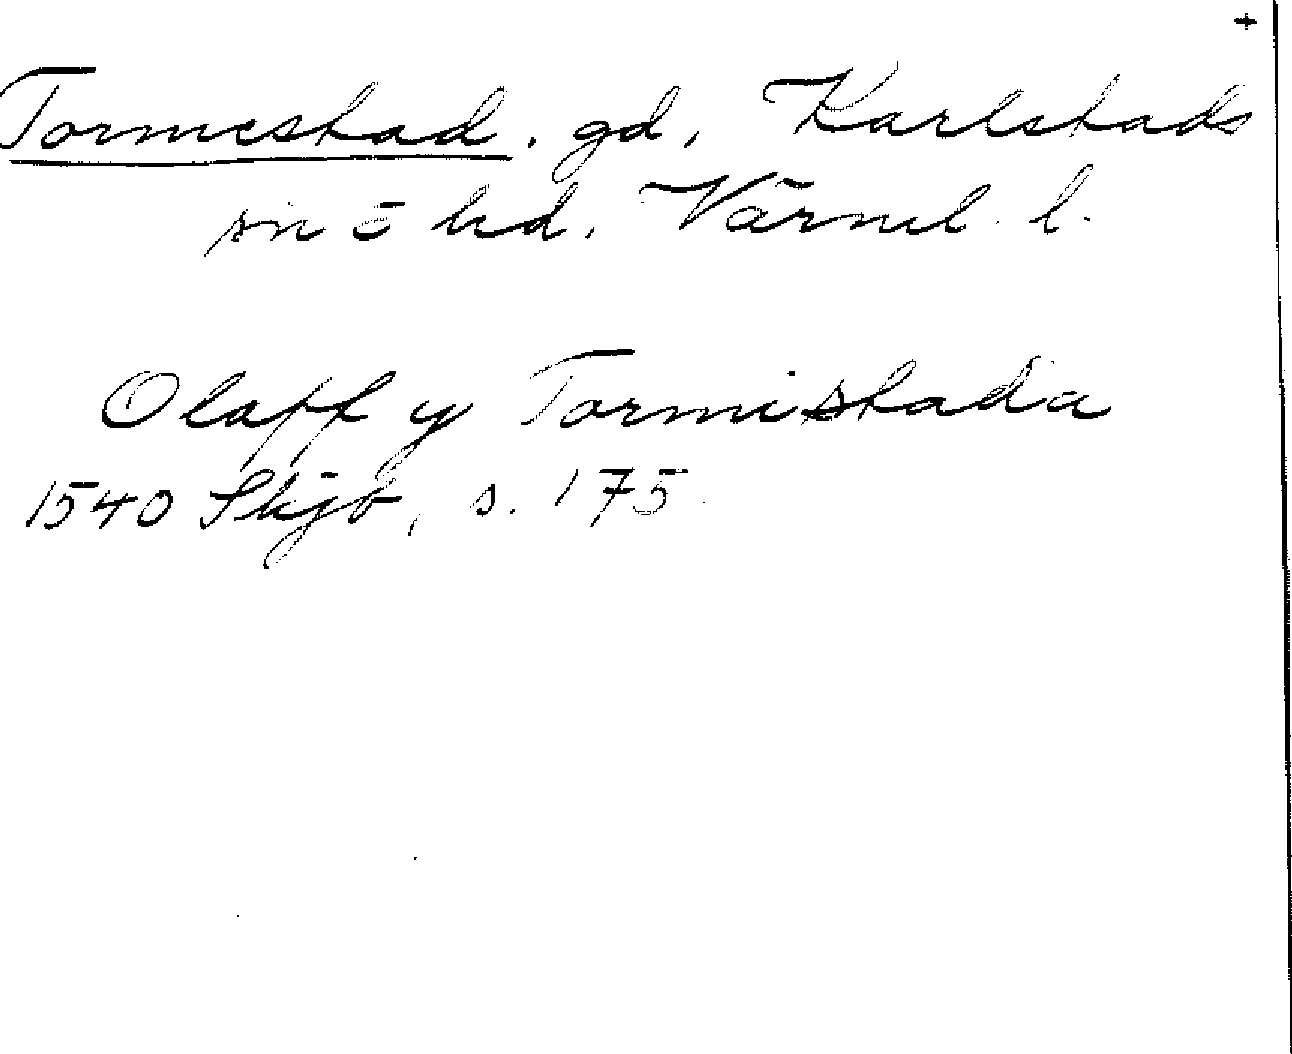 +
Tormestad, gd, Karlstads
sn o hd, Värml. l.
Olaff y Tormistada
1540 Skjb, s. 175.